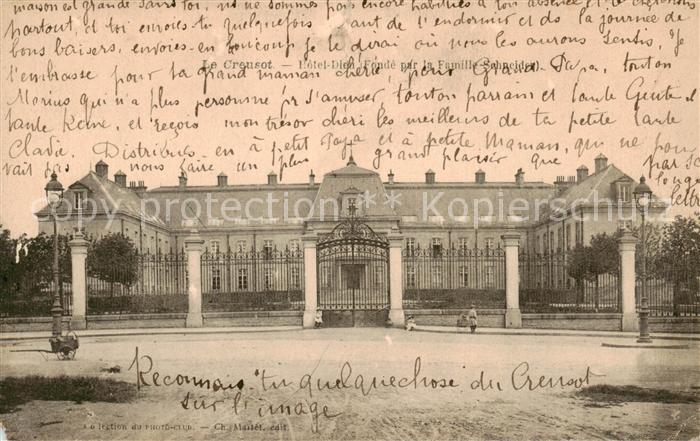 maison est grande sans toi, ne sommes pas encore habitués à ton absence et te cherchons
partout, et toi envoies-tu quelquefois avant de t'endormir et ds la journée de
bons baisers, envoies-en beaucoup je te dirai où nous les aurons sentis, je
Le Creusot. — Hôtel-Dieu (Fondé par la Famille Schneider).
t'embrasse pour ta grand maman chérie, pour Grand Papa, tonton
Marius qui n'a plus personne pr s'amuser, tonton parrain et tante
tante et reçois mon trésor chéri les meilleurs de ta petite tante
Distribues en à petit Papa et à petite Maman, qui ne pou
vait pas nous faire un plus grand plaisir que par sa
longue lettre
www.ansichtskarten-center.de
Reconnais-tu quelque chose du Creusot
sur l'image
Collection du PHOTO-CLUB. — Ch. Martet, édit.